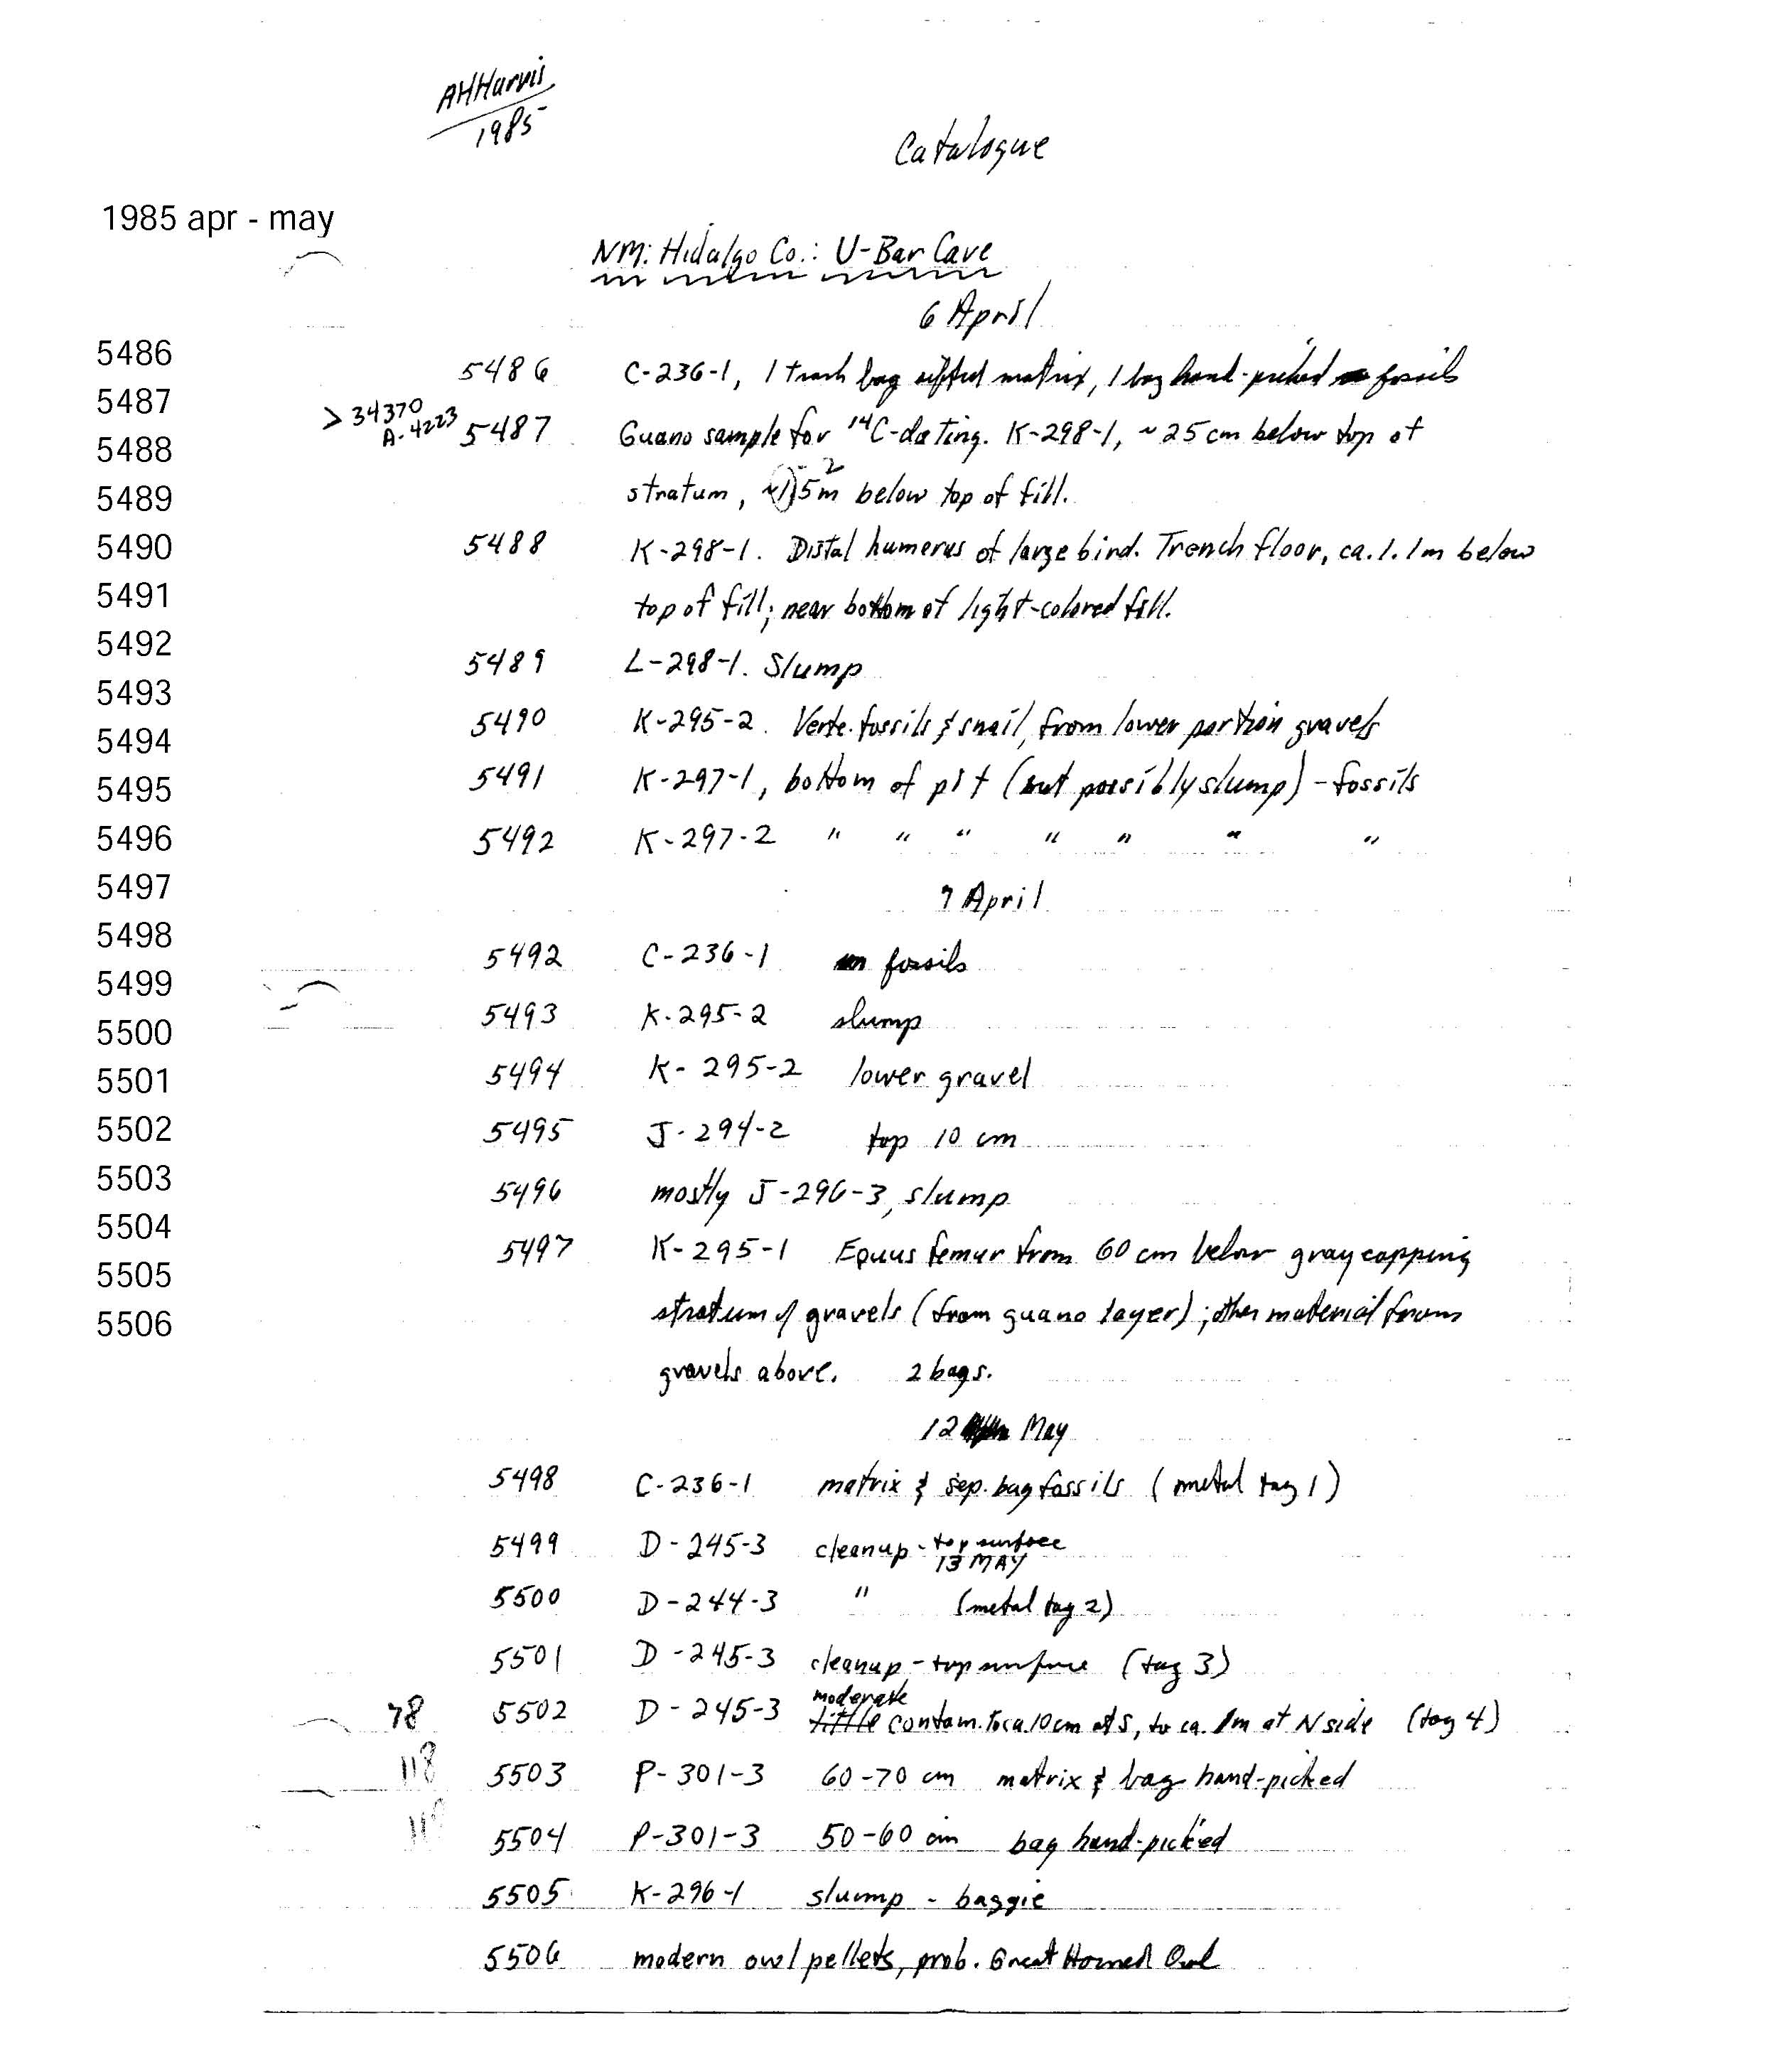 AHHarris
1985
Catalogue
1985 apr - may
NM: Hidalgo Co.: U-Bar Cave
6 April
5486
5487
5488
5489
5490
5491
5492
5493
5494
5495
5496
5497
5498
5499
5500
5501
5502
5503
5504
5505
5506
5486 C-236-1, 1 trash bag sifted matrix, 1 bag hand-picked fossils
> 34370
A-4223
5487 Guano sample for 14C-dating. K-298-1, ~25 cm below top of
stratum, 5m below top of fill.
5488 K-298-1. Distal humerus of large bird. Trench floor, ca. 1.1m below
top of fill; near bottom of light-colored fill.
5489 L-298-1. Slump
5490 K-295-2. Verte. fossils & snail, from lower portion gravels
5491 K-297-1, bottom of pit (but possibly slump) - fossils
5492 K-297-2 " " " " " " "
7 April
5492 C-236-1 fossils
5493 K-295-2 slump
5494 K-295-2 lower gravel
5495 J-294-2 top 10 cm
5496 mostly J-296-3, slump
5497 K-295-1 Equus femur from 60 cm below gray capping
stratum of gravels (from guano layer); other material from
gravels above. 2 bags.
12 May
5498 C-236-1 matrix & sep. bag fossils (metal tag 1)
5499 D-245-3 cleanup - top surface
13 MAY
5500 D-244-3 " (metal tag 2)
5501 D-245-3 cleanup - top surface (tag 3)
moderate
78 5502 D-245-3 little contam. to ca. 10cm at S, to ca. 1m at N side (tag 4)
118 5503 P-301-3 60-70 cm matrix & bag hand-picked
5504 P-301-3 50-60 cm bag hand-picked
5505 K-296-1 slump - baggie
5506 modern owl pellets, prob. Great Horned Owl